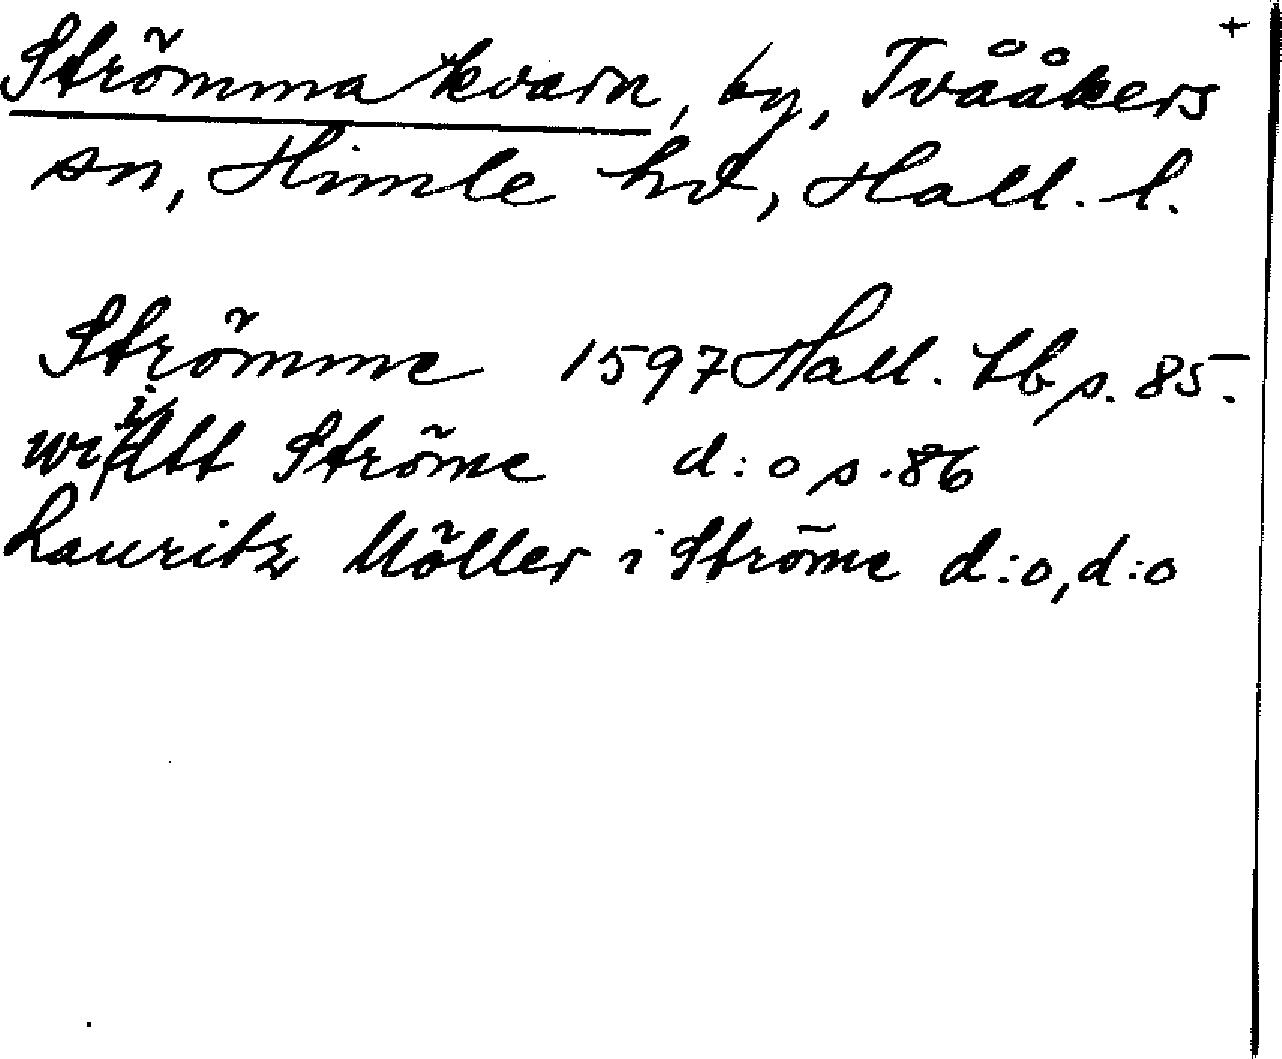 +
Strömma kvarn, by, Tvååkers
sn, Himle hd, Hall. l.
Strömme 1597 Hall. tb p. 85.
Ströme d:o p. 86
Lauritz Möller i Ströme d:o, d:o